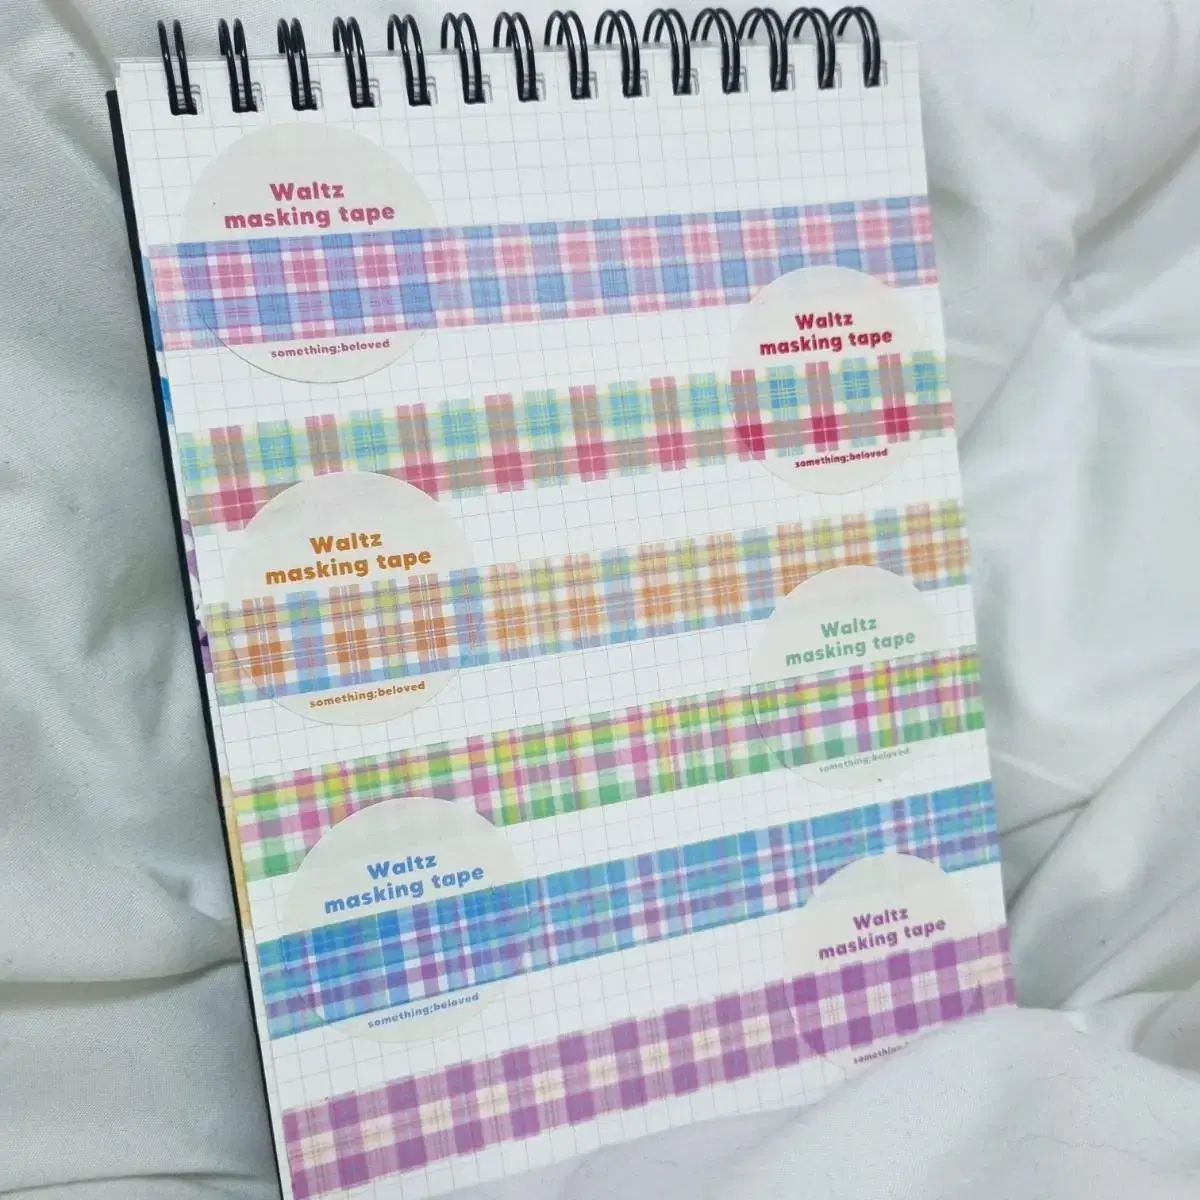 Waltz
masking tape
something;beloved
Waltz
masking tape
something;beloved
Waltz
masking tape
something;beloved
Waltz
masking tape
something;beloved
Waltz
masking tape
something;beloved
Waltz
masking tape